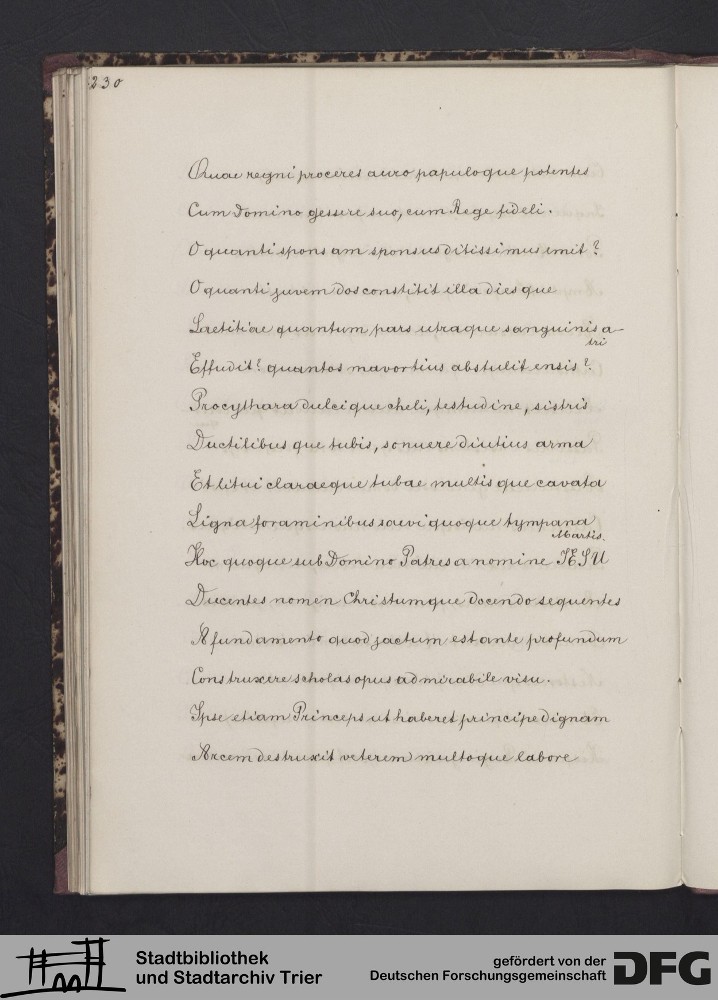 230
Quae regni proceres auro papuloque potentes
Cum Domino gessere suo, cum Rege fideli.
O quanti sponsam sponsus ditissimus emit?
O quanti juvem dos constitit illa diesque
Laetitiae quantum pars utraque sanguinis a-
tri
Effudit? quantos mavortius abstulit ensis?
Pro cythara dulcique cheli, testudine, sistris
Ductilibusque tubis, sonuere diutius arma
Et litui claraeque tubae multisque cavata
Ligna foraminibus saevi quoque tympana
Martis.
Hoc quoque sub Domino Patres a nomine JESU
Ducentes nomen Christumque docendo sequentes
A fundamento quod jactum est ante profundum
Construxere scholas opus admirabile visu.
Ipse etiam Princeps ut haberet principe dignam
Arcem destruxit veterem multoque labore
Stadtbibliothek
und Stadtarchiv Trier
gefördert von der
Deutschen Forschungsgemeinschaft
DFG